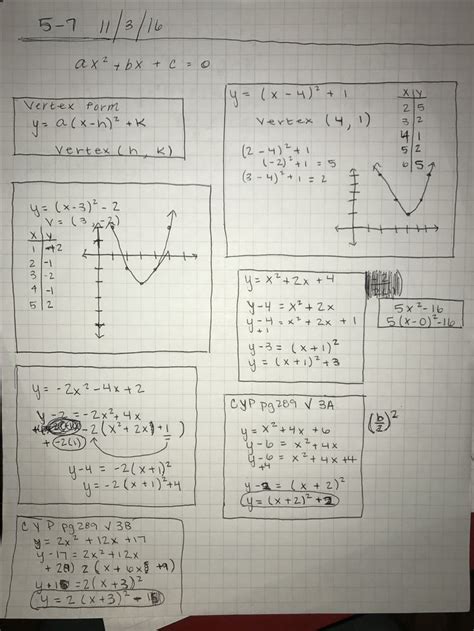 5-7 11/3/16
ax² + bx + c = 0
Vertex Form
y = a(x-h)² + k
Vertex (h, k)
y = (x-4)² + 1
Vertex (4, 1)
(2-4)² + 1
(-2)² + 1 = 5
(3-4)² + 1 = 2
x y
2 5
3 2
4 1
5 2
6 5
y = (x-3)² - 2
V = (3, -2)
x y
1 2
2 -1
3 -2
4 -1
5 2
y = x² + 2x + 4
y-4 = x² + 2x
y-4 = x² + 2x + 1
+1
y-3 = (x+1)²
y = (x+1)² + 3
5x² - 16
5(x-0)² - 16
y = -2x² - 4x + 2
y-2 = -2x² - 4x
-2(x² + 2x + 1)
+(-2)(1)
y-4 = -2(x+1)²
y = -2(x+1)² + 4
CYP pg 289 √ 3A
(b/2)²
y = x² + 4x + 6
y-6 = x² + 4x
y-6 = x² + 4x + 4
+4
y-2 = (x+2)²
y = (x+2)² + 2
CYP pg 289 √ 3B
y = 2x² + 12x + 17
y-17 = 2x² + 12x
2(x + 6x + 9)
= 2(x+3)²
y = 2(x+3)²